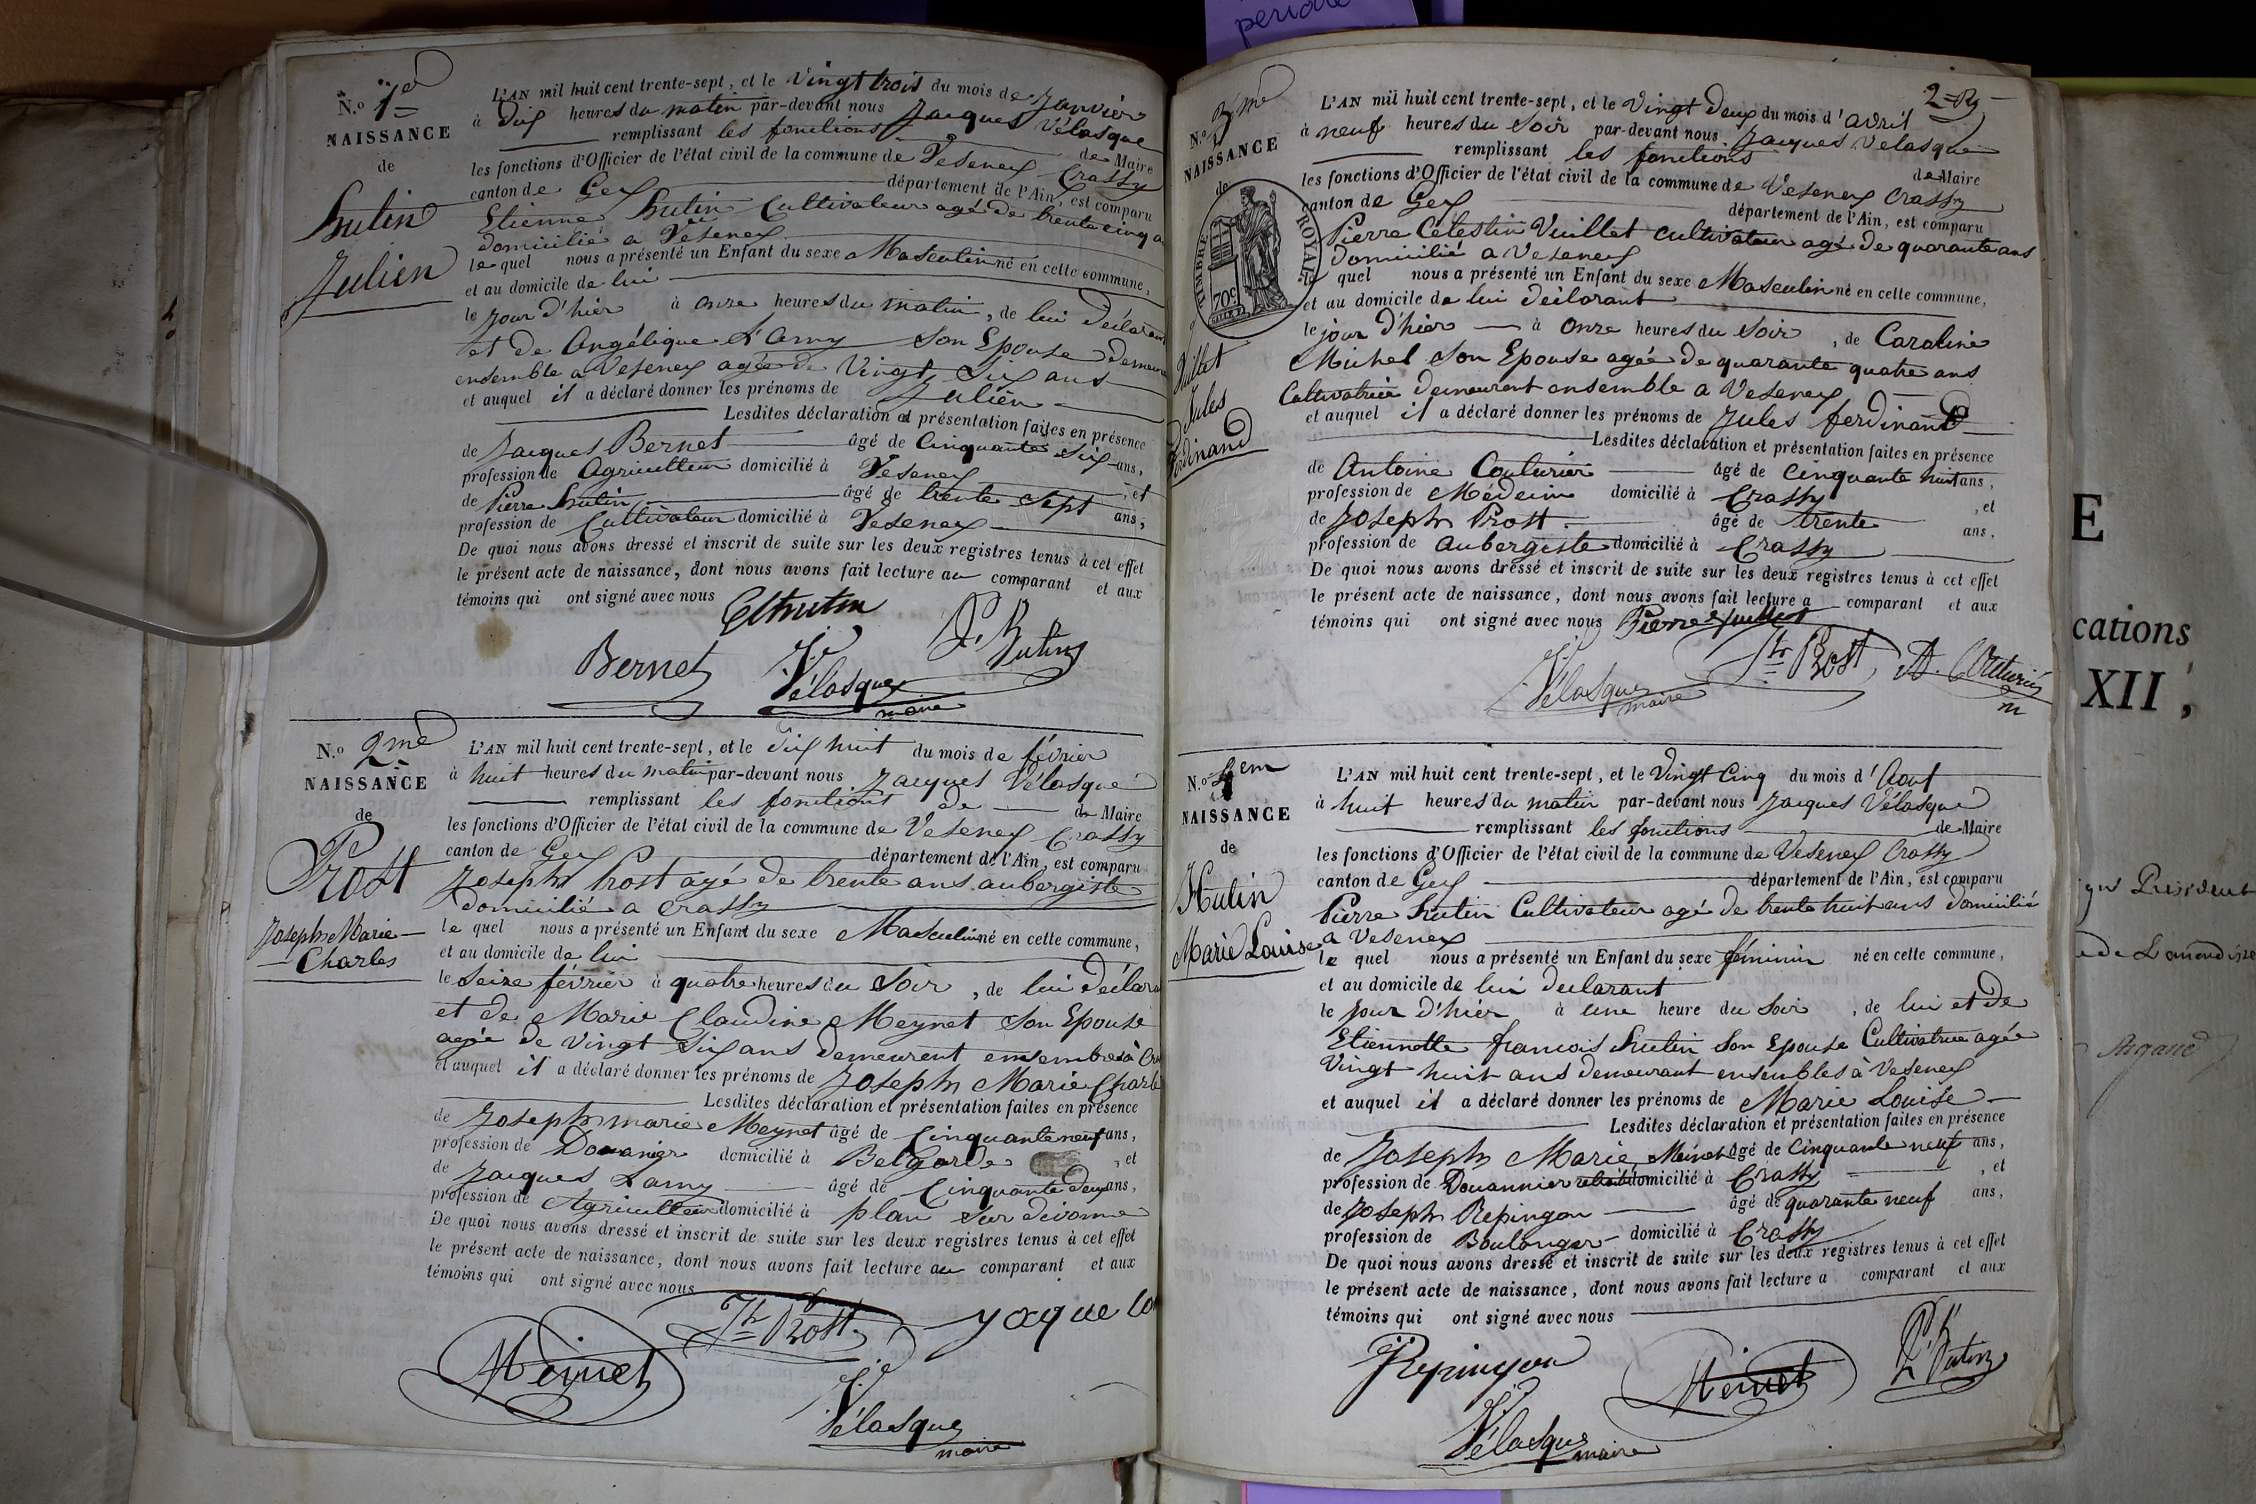 période
N.o 1er
NAISSANCE
de
hutin
Julien
L'AN mil huit cent trente-sept, et le Vingt trois du mois de Janvier
à dix heures du matin par-devant nous Jacques Vélasque
remplissant les fonctions de Maire
les fonctions d'Officier de l'état civil de la commune de Vesenex Crassy
canton de Gex département de l'Ain, est comparu
Etienne hutin Cultivateur agé de trente cinq a
domicilié a Vesenex
le quel nous a présenté un Enfant du sexe Masculin né en cette commune,
et au domicile de lui
le jour d'hier à onze heures du matin, de lui Déclarant
et de Angélique L'amy son Epouse demeurt
ensemble a Vesenex agée de Vingt Six ans
et auquel il a déclaré donner les prénoms de Julien
Lesdites déclaration et présentation faites en présence
de Jacques Bernet âgé de Cinquante Six ans,
profession de Agriculteur domicilié à Vesenex, et
de Pierre hutin âgé de trente Sept ans,
profession de Cultivateur domicilié à Vesenex
De quoi nous avons dressé et inscrit de suite sur les deux registres tenus à cet effet
le présent acte de naissance, dont nous avons fait lecture au comparant et aux
témoins qui ont signé avec nous Et hutin
Bernet Vélasque P. hutin
maire
N.o 2me
NAISSANCE
de
Prost
Joseph Marie
Charles
L'AN mil huit cent trente-sept, et le dix huit du mois de février
à huit heures du matin par-devant nous Jacques Vélasque
remplissant les fonctions de de Maire
les fonctions d'Officier de l'état civil de la commune de Vesenex Crassy
canton de Gex département de l'Ain, est comparu
Joseph Prost agé de trente ans aubergiste
domicilié a Crassy
le quel nous a présenté un Enfant du sexe Masculin né en cette commune,
et au domicile de lui
le Seize février à quatre heures du Soir, de lui déclara
et de Marie Claudine Meynet son Epouse
agée de Vingt Six ans demeurent ensembles à Cra
et auquel il a déclaré donner les prénoms de Joseph Marie Charle
Lesdites déclaration et présentation faites en présence
de Joseph marie Meynet âgé de Cinquante neuf ans,
profession de Douanier domicilié à Belgarde, et
de Jacques Lamy âgé de Cinquante deux ans,
profession de Agriculteur domicilié à plan sur divonne
De quoi nous avons dressé et inscrit de suite sur les deux registres tenus à cet effet
le présent acte de naissance, dont nous avons fait lecture au comparant et aux
témoins qui ont signé avec nous
Jh Prost jaque la
Meinet
Vélasque
maire
2
N.o 3.me
NAISSANCE
de
TIMBRE ROYAL
70c
Vuillet
Jules
Ferdinand
L'AN mil huit cent trente-sept, et le Vingt Deux du mois d'avril
à neuf heures du Soir par-devant nous Jacques Velasque
remplissant les fonctions de Maire
les fonctions d'Officier de l'état civil de la commune de Vesenex Crassy
canton de Gex département de l'Ain, est comparu
Pierre Célestin Vuillet cultivateur agé de quarante ans
Domicilié a Vesenex
le quel nous a présenté un Enfant du sexe Masculin né en cette commune,
et au domicile de lui déclarant
le jour d'hier à onze heures du Soir, de Caroline
Michel son Epouse agée de quarante quatre ans
Cultivatrice demeurent ensemble a Vesenex
et auquel il a déclaré donner les prénoms de Jules ferdinand
Lesdites déclaration et présentation faites en présence
de Antoine Couturier âgé de Cinquante huit ans,
profession de Médecin domicilié à Crassy, et
de Joseph Prost. âgé de trente ans,
profession de aubergiste domicilié à Crassy
De quoi nous avons dressé et inscrit de suite sur les deux registres tenus à cet effet
le présent acte de naissance, dont nous avons fait lecture a comparant et aux
témoins qui ont signé avec nous Pierre Vuillet
Vélasque Jh Prost A. Couturier
maire
N.o 4em
NAISSANCE
de
Hutin
Marie Louise
L'AN mil huit cent trente-sept, et le Vingt Cinq du mois d'Aout
à huit heures du matin par-devant nous Jacques Vélasque
remplissant les fonctions de Maire
les fonctions d'Officier de l'état civil de la commune de Vesenex Crassy
canton de Gex département de l'Ain, est comparu
Pierre hutin Cultivateur agé de trente huit ans domicilié
a Vesenex
le quel nous a présenté un Enfant du sexe féminin né en cette commune,
et au domicile de lui declarant
le jour d'hier à une heure du Soir, de lui et de
Etiennette francois hutin son Epouse Cultivatrice agée
Vingt huit ans demeurant ensembles à Vesenex
et auquel il a déclaré donner les prénoms de Marie Louise
Lesdites déclaration et présentation faites en présence
de Joseph Marie Meinet âgé de Cinquante neuf ans,
profession de Douannier domicilié à Crassy, et
de Joseph Repingon âgé de quarante neuf ans,
profession de Boulanger domicilié à Crassy
De quoi nous avons dressé et inscrit de suite sur les deux registres tenus à cet effet
le présent acte de naissance, dont nous avons fait lecture a comparant et aux
témoins qui ont signé avec nous
Repingon Meinet P. hutin
Vélasque
maire
E
cations
XII,
Président